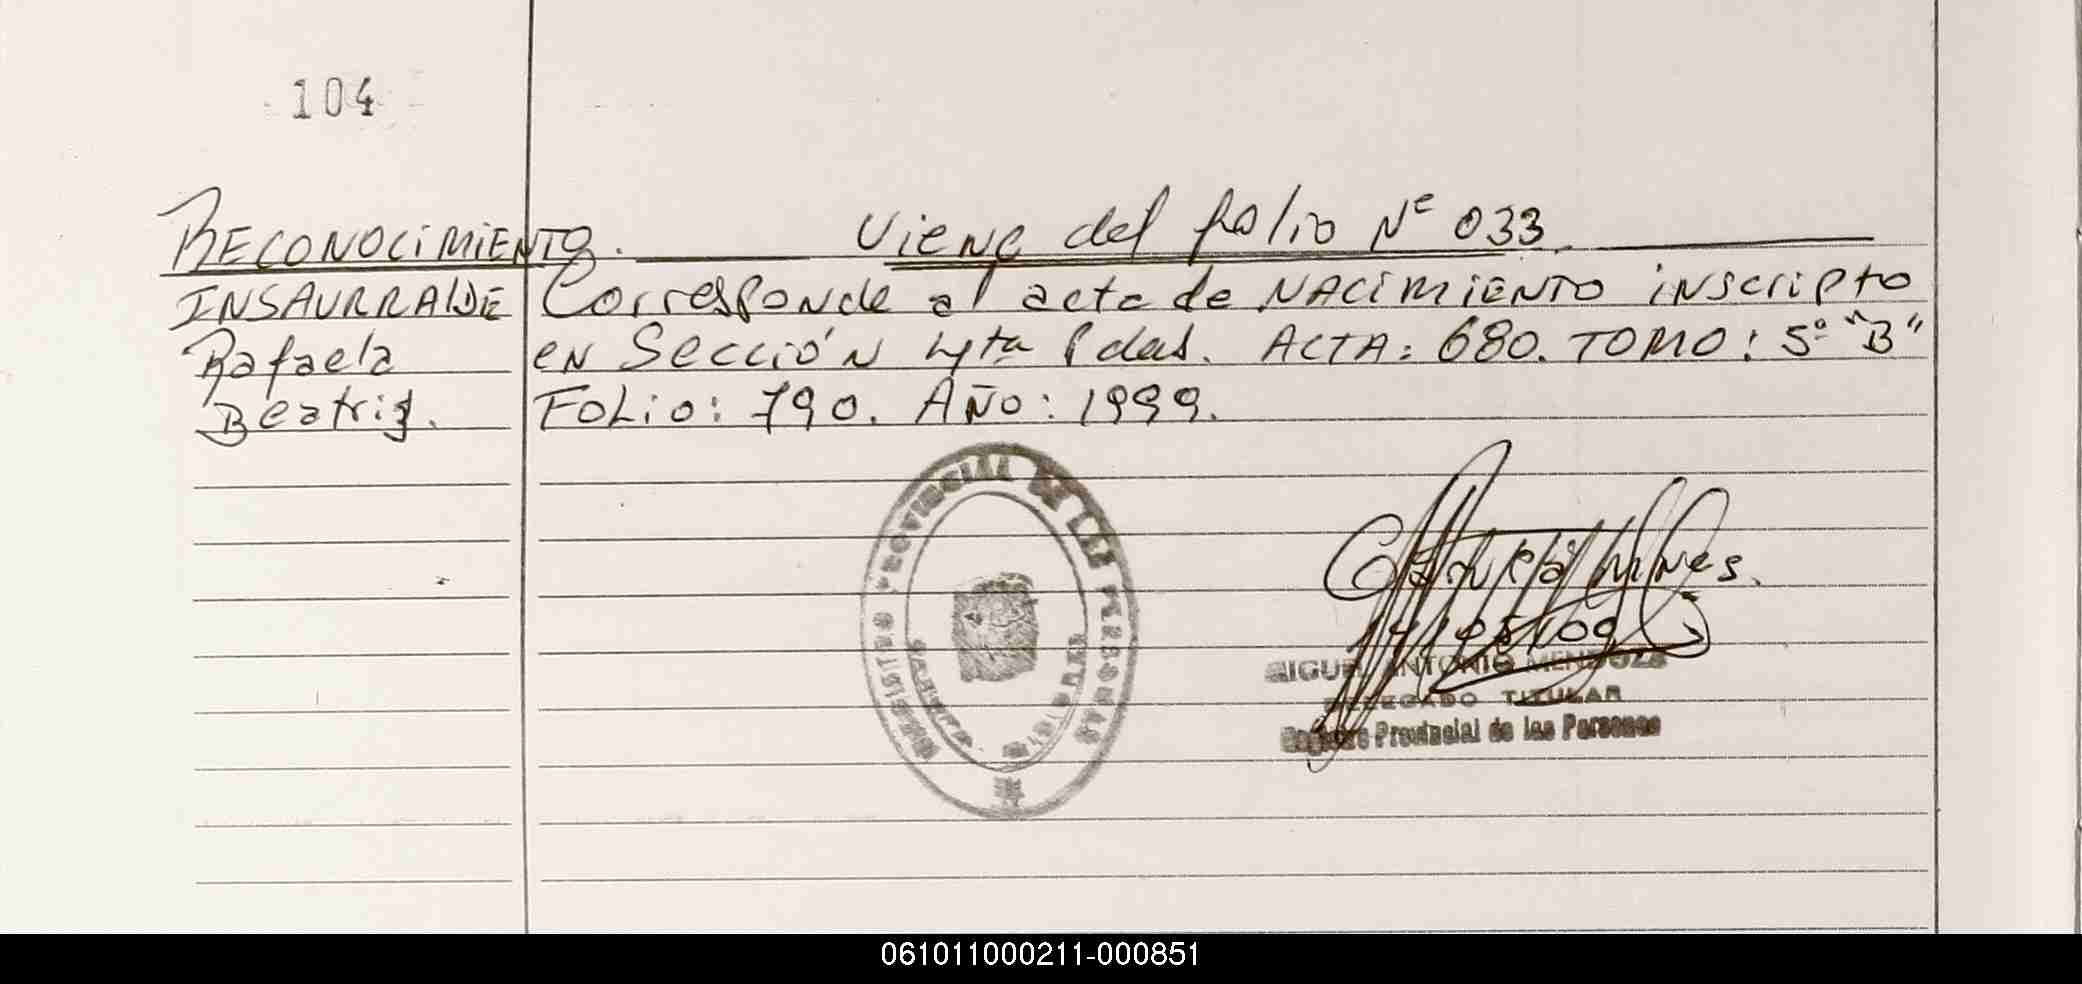 104
RECONOCIMIENTO. Viene del folio Nº 033.
INSAURRALDE Corresponde al acta de NACIMIENTO inscripto
Rafaela en Sección Ignta Pdas. ACTA: 680. TOMO: 5º "B"
Beatriz. FOLIO: 790. AÑO: 1999.
REGISTRO PROVINCIAL DE LAS PERSONAS
MIGUEL ANTONIO MENDOZA
DELEGADO TITULAR
Registro Provincial de las Personas
061011000211-000851